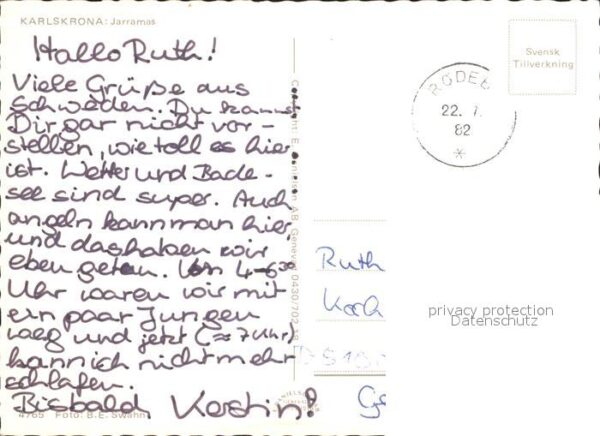 KARLSKRONA: Jarramas
Hallo Ruth!
Viele Grüße aus
Schweden. Du kannst
Dir gar nicht vor-
stellen, wie toll es hier
ist. Wetter und Bade-
see sind super. Auch
angeln kann man hier
und das haben wir
eben getan. Von 4-6³⁰
Uhr waren wir mit
ein paar Jungen
weg und jetzt (≈ 7 Uhr)
kann ich nicht mehr
schlafen.
Bis bald, Kerstin!
4765 Foto: B.E. Swahn
AB, Genevad 0430/702
Svensk
Tillverkning
RÖDEB
22. 7.
82
*
Ruth
privacy protection
Datenschutz